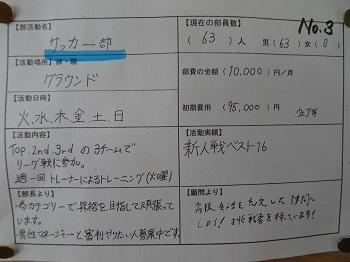 【部活動名】
サッカー部
【現在の部員数】
No.3
(63)人 男(63)女(0)
【活動場所】棟・階
グラウンド
部費の金額(10,000)円/月
【活動日時】
火、水、木、金、土、日
初期費用(95,000)円
ウェア等
【活動内容】
Top. 2nd. 3rd の3チームで
リーグ戦に参加。
週一回トレーナーによるトレーニング(火曜)
【活動実績】
新人戦ベスト16
【部長より】
・各カテゴリーで昇格を目指して頑張って
います。
・男性マネージャーと審判やりたい人募集中です。
【顧問より】
高校生活を充実した3年間に
しよう! 挑戦者を待っています!